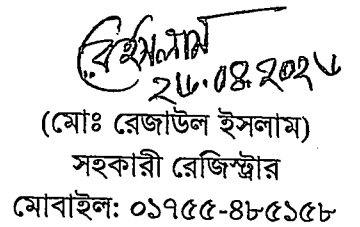 রেইসলাম
২৮.০৪.২০২৮
(মোঃ রেজাউল ইসলাম)
সহকারী রেজিস্ট্রার
মোবাইল: ০১৭৫৫-৪৮৫১৫৮